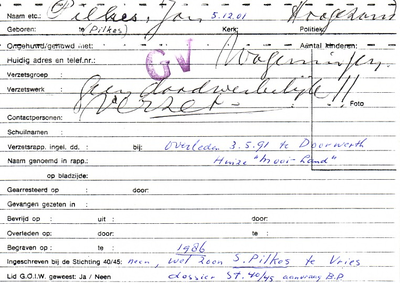 Naam etc.: Pilkes, Jan 5.12.01 Hoogezand
Geboren: te (Pilkes) Kerk: Politiek:
Ongehuwd/gehuwd met: Aantal kinderen:
Huidig adres en telef.nr.: Wageningen.
GV
Verzetsgroep :
Verzetswerk : geen daadwerkelijk !!
verzet - Foto
Contactpersonen:
Schuilnamen :
Verzetsrapp. ingel. dd. : bij: overleden 3.5.91 te Doorwerth
Naam genoemd in rapp.: Huize "Mooi-Land"
op bladzijde:
Gearresteerd op : door:
Gevangen gezeten in :
Bevrijd op : uit : door:
Overleden op: : te : door:
Begraven op : te : 1986
Ingeschreven bij de Stichting 40/45: neen, wel zoon S. Pilkes te Vries
Lid G.O.I.W. geweest: Ja / Neen dossier St. 40/45 aanvraag B.P.